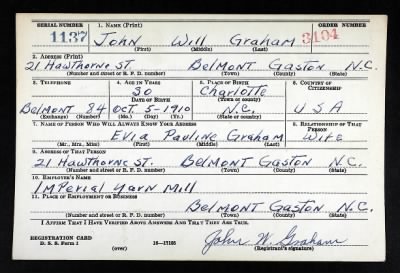 SERIAL NUMBER 1. NAME (Print) ORDER NUMBER
1137 John Will Graham 3104
(First) (Middle) (Last)
2. ADDRESS (Print)
21 Hawthorne St. Belmont Gaston N.C.
(Number and street or R. F. D. number) (Town) (County) (State)
3. TELEPHONE 4. AGE IN YEARS 5. PLACE OF BIRTH 6. COUNTRY OF CITIZENSHIP
30 Charlotte
DATE OF BIRTH (Town or county)
Belmont 84 Oct 5-1910 N.C. USA
(Exchange) (Number) (Mo.) (Day) (Yr.) (State or country)
7. NAME OF PERSON WHO WILL ALWAYS KNOW YOUR ADDRESS 8. RELATIONSHIP OF THAT PERSON
Evia Pauline Graham Wife
(Mr., Mrs., Miss) (First) (Middle) (Last)
9. ADDRESS OF THAT PERSON
21 Hawthorne St. Belmont Gaston N.C.
(Number and street or R. F. D. number) (Town) (County) (State)
10. EMPLOYER'S NAME
Imperial Yarn Mill
11. PLACE OF EMPLOYMENT OR BUSINESS
Belmont Gaston N.C.
(Number and street or R. F. D. number) (Town) (County) (State)
I AFFIRM THAT I HAVE VERIFIED ABOVE ANSWERS AND THAT THEY ARE TRUE.
REGISTRATION CARD
D. S. S. Form 1 (over) 16-17105 John W. Graham
(Registrant's signature)